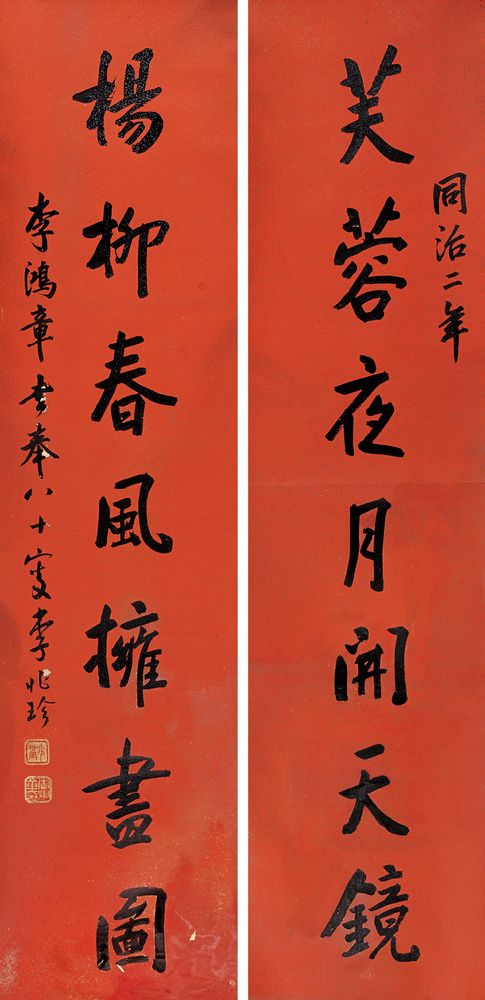 同治二年
芙蓉夜月開天鏡
楊柳春風擁畫圖
李鴻章書奉八十叟李兆珍